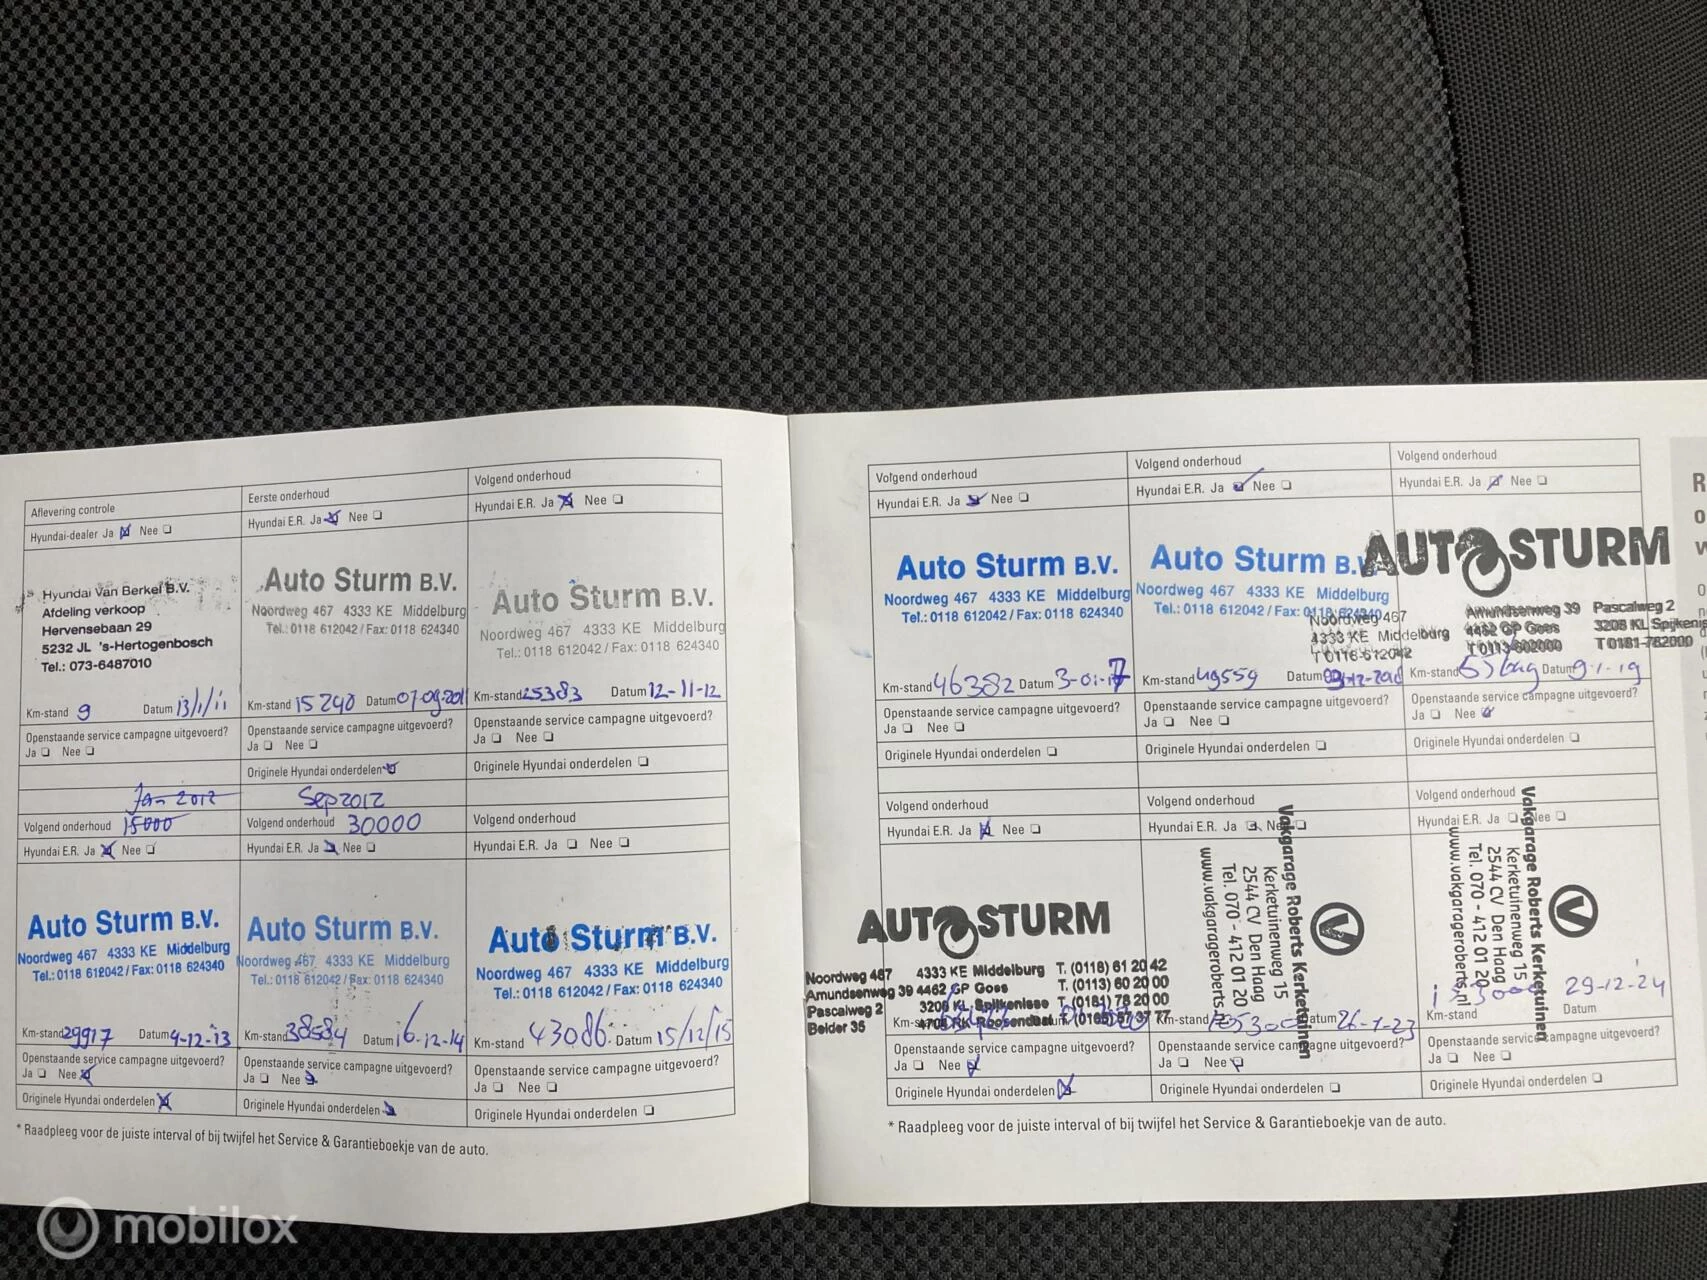 Aflevering controle
Hyundai-dealer Ja Nee
Hyundai Van Berkel B.V.
Afdeling verkoop
Hervensebaan 29
5232 JL 's-Hertogenbosch
Tel.: 073-6487010
Km-stand 9 Datum 13/1/11
Openstaande service campagne uitgevoerd?
Ja Nee
Jan 2012
Eerste onderhoud
Hyundai E.R. Ja Nee
Auto Sturm B.V.
Noordweg 467 4333 KE Middelburg
Tel.: 0118 612042 / Fax: 0118 624340
Km-stand 15240 Datum 07-09-2011
Openstaande service campagne uitgevoerd?
Ja Nee
Originele Hyundai onderdelen
Sep 2012
Volgend onderhoud
Hyundai E.R. Ja Nee
Auto Sturm B.V.
Noordweg 467 4333 KE Middelburg
Tel.: 0118 612042 / Fax: 0118 624340
Km-stand 25383 Datum 12-11-12
Openstaande service campagne uitgevoerd?
Ja Nee
Originele Hyundai onderdelen
Volgend onderhoud 15000
Hyundai E.R. Ja Nee
Auto Sturm B.V.
Noordweg 467 4333 KE Middelburg
Tel.: 0118 612042 / Fax: 0118 624340
Km-stand 29917 Datum 4-12-'13
Openstaande service campagne uitgevoerd?
Ja Nee
Originele Hyundai onderdelen
Volgend onderhoud 30000
Hyundai E.R. Ja Nee
Auto Sturm B.V.
Noordweg 467 4333 KE Middelburg
Tel.: 0118 612042 / Fax: 0118 624340
Km-stand 38584 Datum 16-12-14
Openstaande service campagne uitgevoerd?
Ja Nee
Originele Hyundai onderdelen
Volgend onderhoud
Hyundai E.R. Ja Nee
Auto Sturm B.V.
Noordweg 467 4333 KE Middelburg
Tel.: 0118 612042 / Fax: 0118 624340
Km-stand 43086 Datum 15/12/15
Openstaande service campagne uitgevoerd?
Ja Nee
Originele Hyundai onderdelen
* Raadpleeg voor de juiste interval of bij twijfel het Service & Garantieboekje van de auto.
Volgend onderhoud
Hyundai E.R. Ja Nee
Auto Sturm B.V.
Noordweg 467 4333 KE Middelburg
Tel.: 0118 612042 / Fax: 0118 624340
Km-stand 46382 Datum 3-01-17
Openstaande service campagne uitgevoerd?
Ja Nee
Originele Hyundai onderdelen
Volgend onderhoud
Hyundai E.R. Ja Nee
Auto Sturm B.V.
Noordweg 467 4333 KE Middelburg
Tel.: 0118 612042 / Fax: 0118 624340
Km-stand 49559 Datum
Openstaande service campagne uitgevoerd?
Ja Nee
Originele Hyundai onderdelen
Volgend onderhoud
Hyundai E.R. Ja Nee
AUTO STURM
Noordweg 467 Amundsenweg 39 Pascalweg 2
4333 KE Middelburg 4462 GP Goes 3208 KL Spijkenis
T 0118-612042 T 0113-602000 T 0181-782000
Km-stand Datum 9-1-19
Openstaande service campagne uitgevoerd?
Ja Nee
Originele Hyundai onderdelen
Volgend onderhoud
Hyundai E.R. Ja Nee
AUTO STURM
Noordweg 467 4333 KE Middelburg T. (0118) 61 20 42
Amundsenweg 39 4462 GP Goes T. (0113) 60 20 00
Pascalweg 2 3208 KL Spijkenisse T. (0181) 78 20 00
Belder 35 4704 RK Roosendaal T. (0165) 57 37 77
Openstaande service campagne uitgevoerd?
Ja Nee
Originele Hyundai onderdelen
Volgend onderhoud
Hyundai E.R. Ja Nee
Vakgarage Roberts Kerketuinen
Kerketuinenweg 15
2544 CV Den Haag
Tel. 070 - 412 01 20
www.vakgarageroberts.
Km-stand 105300 Datum 26-1-23
Openstaande service campagne uitgevoerd?
Ja Nee
Originele Hyundai onderdelen
Volgend onderhoud
Hyundai E.R. Ja Nee
Vakgarage Roberts Kerketuinen
Kerketuinenweg 15
2544 CV Den Haag
Tel. 070 - 412 01 20
www.vakgarageroberts.nl
29-12-24
Km-stand Datum
Openstaande service campagne uitgevoerd?
Ja Nee
Originele Hyundai onderdelen
* Raadpleeg voor de juiste interval of bij twijfel het Service & Garantieboekje van de auto.
mobilox